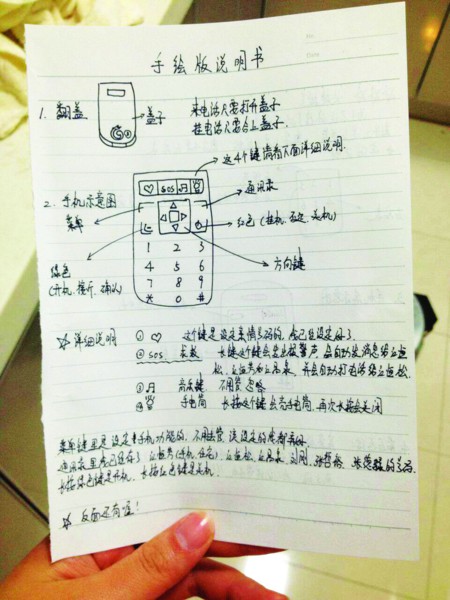 手绘版说明书
1. 翻盖
盖子
来电话只需打开盖子
挂电话只需合上盖子.
这4个键请看下面详细说明.
2. 手机示意图
♡ SOS ♫
菜单
通讯录
红色 (挂机, 否定, 关机)
绿色
(开机, 接听, 确认)
方向键
1 2 3
4 5 6
7 8 9
* 0 #
☆ 详细说明
① ♡ 这个键是设定亲情号码的, 我已经设定好了.
② SOS 求救 长键这个键会发出报警声, 会自动发消息给
, 并会自动打电话给
③ ♫ 音乐键 不用管 忽略
④ 手电筒 长按这个键会亮手电筒, 再次长按会关闭
菜单键里是设定手机功能的, 不用去管, 该设定的我都弄好
通讯录里我已经存了 (手机, 住宅), 刘刚, 的号码.
长按绿色键是开机, 长按红色键是关机.
☆ 反面还有喔!